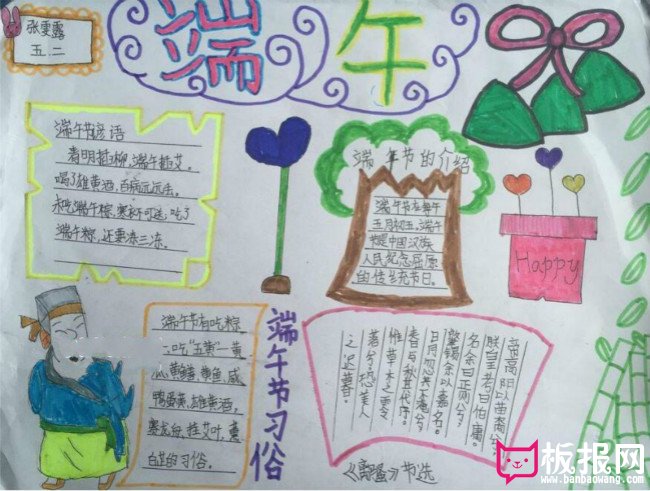 张雯露
五.二
端午
端午节谚语
清明插柳,端午插艾。
喝了雄黄酒,百病远远去。
未吃端午粽,寒衣不可送,吃了
端午粽,还要冻三冻。
端午节的介绍
端午节在每年
五月初五,端午
节是中国汉族
人民纪念屈原
的传统节日。
Happy
端午节习俗
端午节有吃粽
,吃"五黄"一黄
瓜,黄鳝,黄鱼,咸
鸭蛋黄,雄黄酒,
赛龙舟,挂艾叶,薰
白芷的习俗。
帝高阳以苗裔兮,
朕皇考曰伯庸。
名余曰正则兮
肇锡余以嘉名。
日月忽其不淹兮
春与秋其代序。
惟草木之零
落兮,恐美人
之迟暮。
《离骚》节选
板报网
www.banbaowang.com